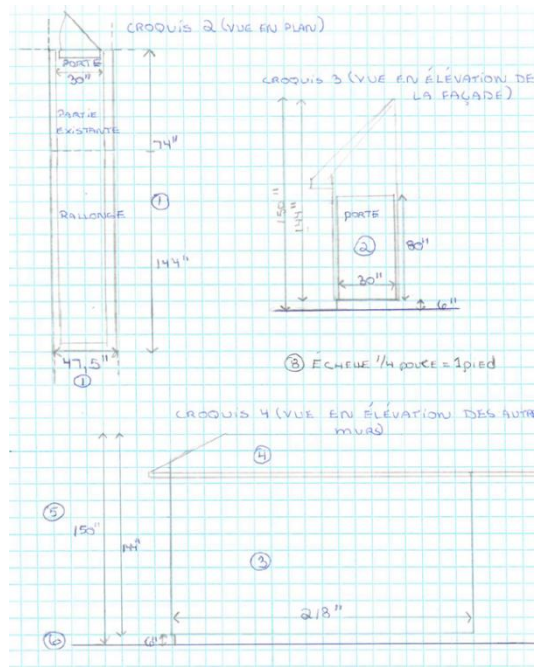 CROQUIS 2 (VUE EN PLAN)
PORTE
30"
PARTIE
EXISTANTE
74"
①
RALLONGE
144"
47,5"
①
CROQUIS 3 (VUE EN ÉLÉVATION DE
LA FAÇADE)
150"
144"
PORTE
②
80"
30"
6"
⑧ ÉCHELLE 1/4 POUCE = 1 PIED
CROQUIS 4 (VUE EN ÉLÉVATION DES AUTRE
MURS)
④
⑤
150"
144"
③
218"
⑥
6"